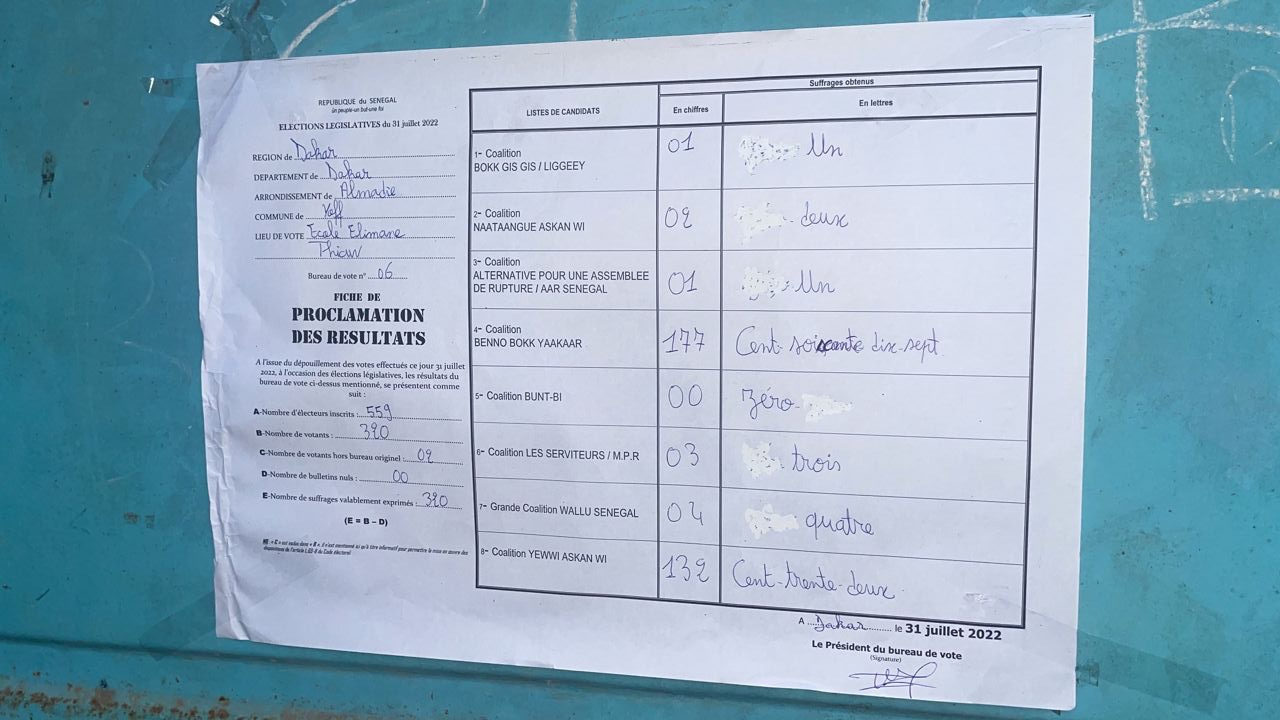 REPUBLIQUE du SENEGAL
Un peuple-un but-une foi
ELECTIONS LEGISLATIVES du 31 juillet 2022
REGION de Dakar
DEPARTEMENT de Dakar
ARRONDISSEMENT de Almadie
COMMUNE de Yoff
LIEU DE VOTE Ecole Elimane
Thiaw
Bureau de vote n° 06
FICHE DE
PROCLAMATION
DES RESULTATS
A l'issue du dépouillement des votes effectués ce jour 31 juillet
2022, à l'occasion des élections législatives, les résultats du
bureau de vote ci-dessus mentionné, se présentent comme
suit :
A-Nombre d'électeurs inscrits : 559
B-Nombre de votants : 320
C-Nombre de votants hors bureau originel : 02
D-Nombre de bulletins nuls : 00
E-Nombre de suffrages valablement exprimés : 320
(E = B – D)
NB : « C » est inclus dans « B », il n'est mentionné ici qu'à titre informatif pour permettre la mise en œuvre des
dispositions de l'article L.69-II du Code électoral
LISTES DE CANDIDATS
Suffrages obtenus
En chiffres
En lettres
1- Coalition
BOKK GIS GIS / LIGGEEY
01
Un
2- Coalition
NAATAANGUE ASKAN WI
02
deux
3- Coalition
ALTERNATIVE POUR UNE ASSEMBLEE
DE RUPTURE / AAR SENEGAL
01
Un
4- Coalition
BENNO BOKK YAAKAAR
177
Cent-soixante dix-sept
5- Coalition BUNT-BI
00
Zéro
6- Coalition LES SERVITEURS / M.P.R
03
trois
7- Grande Coalition WALLU SENEGAL
04
quatre
8- Coalition YEWWI ASKAN WI
132
Cent-trente-deux
A Dakar le 31 juillet 2022
Le Président du bureau de vote
(Signature)